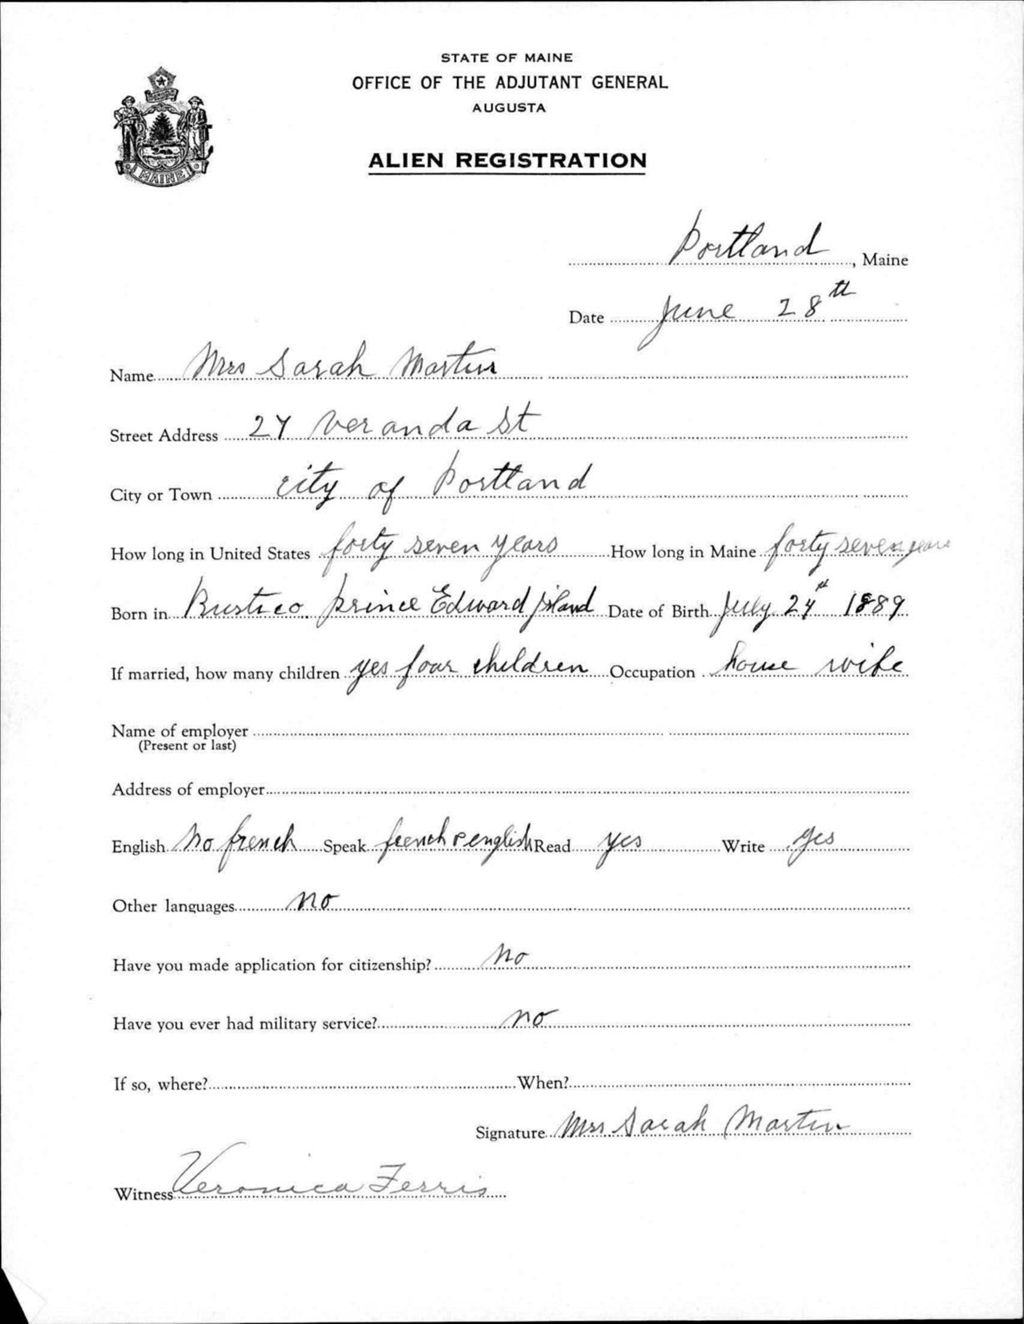 STATE OF MAINE
OFFICE OF THE ADJUTANT GENERAL
AUGUSTA
ALIEN REGISTRATION
MAINE
Portland, Maine
Date June 28th
Name Mrs Sarah Martin
Street Address Veranda St
City or Town city of Portland
How long in United States forty seven years How long in Maine forty seven years
Born in Rustico prince Edward Island Date of Birth July 24th 1889
If married, how many children yes four children Occupation house wife
Name of employer
(Present or last)
Address of employer
English No french Speak french & english Read yes Write yes
Other languages no
Have you made application for citizenship? No
Have you ever had military service? no
If so, where? When?
Signature Mrs Sarah Martin
Witness Veronica Ferris